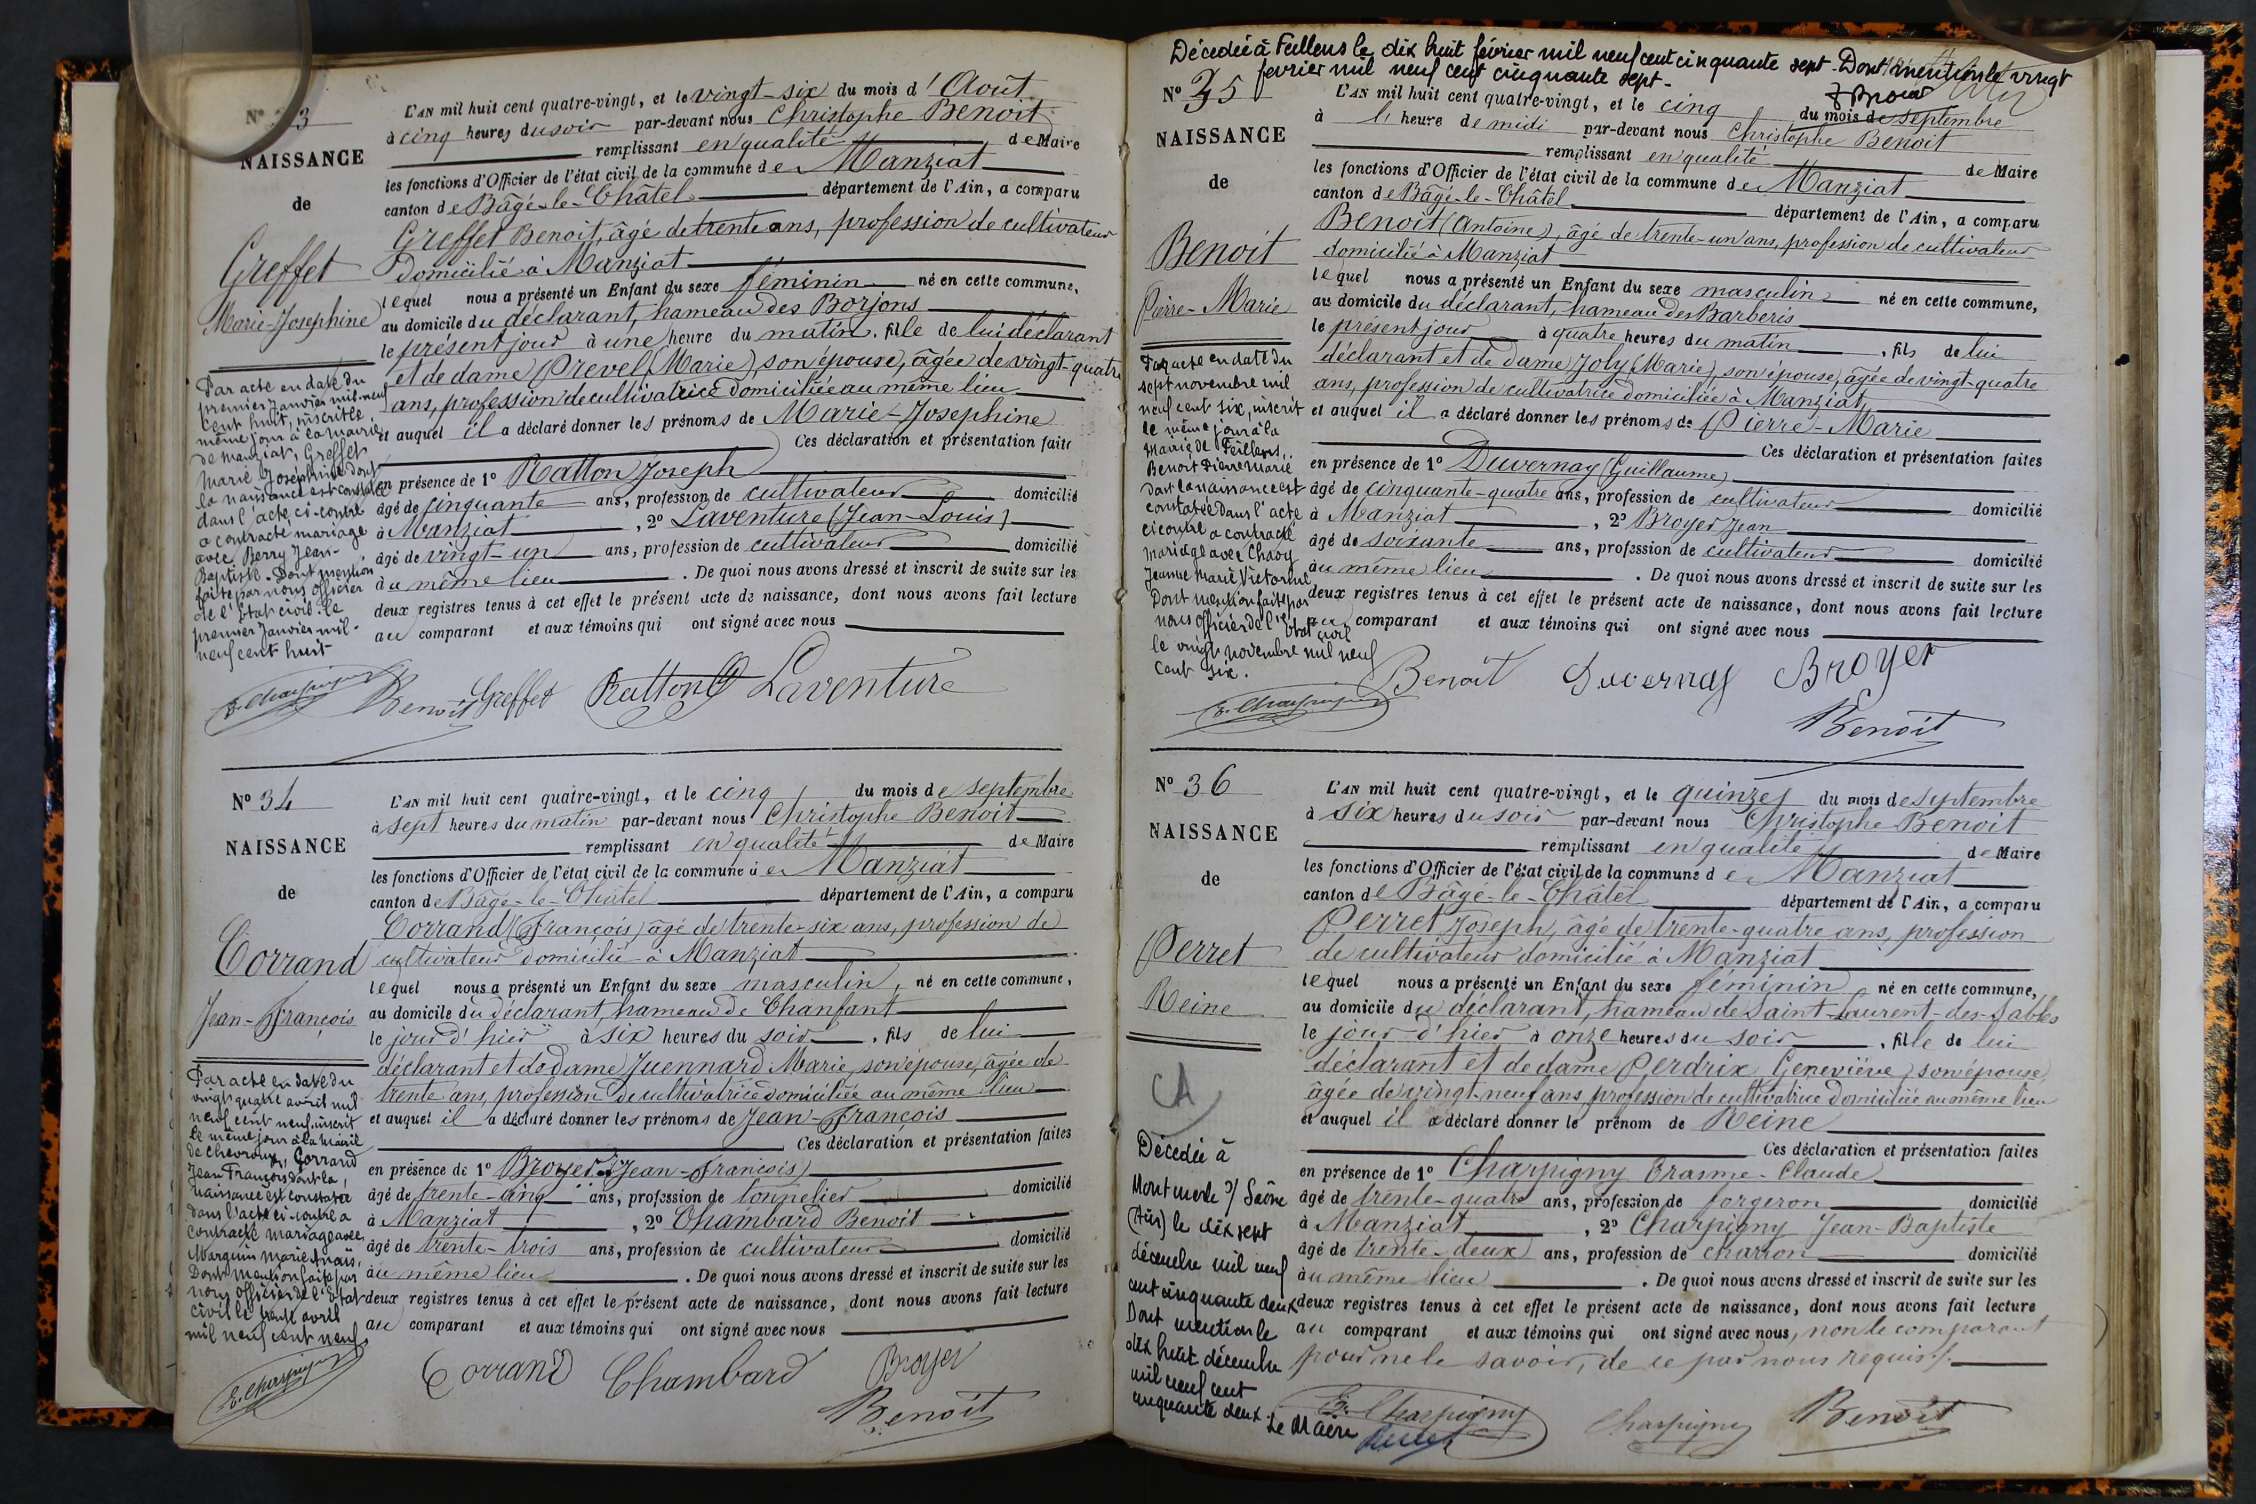 N° 33
NAISSANCE
de
Greffet
Marie-Josephine
L'AN mil huit cent quatre-vingt, et le vingt-six du mois d'Août
à cinq heures du soir par-devant nous Christophe Benoit
remplissant en qualité de Maire
les fonctions d'Officier de l'état civil de la commune de Manziat
canton de Bâgé-le-Châtel département de l'Ain, a comparu
Greffet Benoit, âgé de trente ans, profession de cultivateur
domicilié à Manziat
lequel nous a présenté un Enfant du sexe féminin né en cette commune,
au domicile du déclarant, hameau des Borjons
le présent jour à une heure du matin, fille de lui déclarant
et de dame Prevel (Marie), son épouse, âgée de vingt-quatre
ans, profession de cultivatrice domiciliée au même lieu
et auquel il a déclaré donner les prénoms de Marie-Josephine
Ces déclaration et présentation faites
en présence de 1° Ratton Joseph
âgé de cinquante ans, profession de cultivateur domicilié
à Manziat, 2° Laventure (Jean-Louis)
âgé de vingt-un ans, profession de cultivateur domicilié
au même lieu. De quoi nous avons dressé et inscrit de suite sur les
deux registres tenus à cet effet le présent acte de naissance, dont nous avons fait lecture
au comparant et aux témoins qui ont signé avec nous
Par acte en date du
premier Janvier mil-neuf
cent huit, inscrit le
même jour à la mairie
de Manziat, Greffet
Marie Joséphine dont
la naissance est constatée
dans l'acte ci-contre
a contracté mariage
avec Berry Jean-
Baptiste. Dont mention
faite par nous officier
de l'Etat civil le
premier Janvier mil-
neuf cent huit
E. Charpigny Benoit Greffet Ratton Laventure
N° 34
NAISSANCE
de
Corrand
Jean-François
L'AN mil huit cent quatre-vingt, et le cinq du mois de septembre
à sept heures du matin par-devant nous Christophe Benoit
remplissant en qualité de Maire
les fonctions d'Officier de l'état civil de la commune de Manziat
canton de Bâgé-le-Châtel département de l'Ain, a comparu
Corrand (François) âgé de trente-six ans, profession de
cultivateur domicilié à Manziat
lequel nous a présenté un Enfant du sexe masculin, né en cette commune,
au domicile du déclarant, hameau de Chanfant
le jour d'hier à six heures du soir, fils de lui
déclarant et de dame Juennard Marie, son épouse, âgée de
trente ans, profession de cultivatrice domiciliée au même lieu
et auquel il a déclaré donner les prénoms de Jean-François
Ces déclaration et présentation faites
en présence de 1° Broyer (Jean-François)
âgé de trente-cinq ans, profession de tonnelier domicilié
à Manziat, 2° Chambard Benoit
âgé de trente-trois ans, profession de cultivateur domicilié
au même lieu. De quoi nous avons dressé et inscrit de suite sur les
deux registres tenus à cet effet le présent acte de naissance, dont nous avons fait lecture
au comparant et aux témoins qui ont signé avec nous
Par acte en date du
vingt quatre avril mil
neuf cent neuf, inscrit
le même jour à la Mairie
de Chevroux, Corrand
Jean François dont la
naissance est constatée
dans l'acte ci-contre a
contracté mariage avec
Marguin Marie Anaïs,
Dont mention faite par
nous officier de l'Etat
civil le trente avril
mil neuf cent neuf
E. Charpigny Corrand Chambard Broyer
Benoit
Décedée à Feillens le dix huit février mil neuf cent cinquante sept. Dont mention le vingt
fevrier mil neuf cent cinquante sept.
N° 35
NAISSANCE
de
Benoit
Pierre-Marie
L'AN mil huit cent quatre-vingt, et le cinq du mois de septembre
à l' heure de midi par-devant nous Christophe Benoit
remplissant en qualité de Maire
les fonctions d'Officier de l'état civil de la commune de Manziat
canton de Bâgé-le-Châtel département de l'Ain, a comparu
Benoit (Antoine), âgé de trente-un ans, profession de cultivateur
domicilié à Manziat
lequel nous a présenté un Enfant du sexe masculin né en cette commune,
au domicile du déclarant, hameau des Barberis
le présent jour à quatre heures du matin, fils de lui
déclarant et de dame Joly (Marie), son épouse, âgée de vingt-quatre
ans, profession de cultivatrice domiciliée à Manziat
et auquel il a déclaré donner les prénoms de Pierre-Marie
Ces déclaration et présentation faites
en présence de 1° Duvernay (Guillaume)
âgé de cinquante-quatre ans, profession de cultivateur domicilié
à Manziat, 2° Broyer Jean
âgé de soixante ans, profession de cultivateur domicilié
au même lieu. De quoi nous avons dressé et inscrit de suite sur les
deux registres tenus à cet effet le présent acte de naissance, dont nous avons fait lecture
au comparant et aux témoins qui ont signé avec nous
Par acte en date du
sept novembre mil
neuf cent six, inscrit
le même jour à la
Mairie de Feillens,
Benoit Pierre Marie
dont la naissance est
constatée dans l'acte
ci contre a contracté
mariage avec Chaoy
Jeanne Marie Victorine
Dont mention faite par
nous officier de l'Etat civil
le vingt novembre mil neuf
cent six.
E. Charpigny Benoit Duvernay Broyer
Benoit
N° 36
NAISSANCE
de
Perret
Reine
L'AN mil huit cent quatre-vingt, et le quinze du mois de septembre
à six heures du soir par-devant nous Christophe Benoit
remplissant en qualité de Maire
les fonctions d'Officier de l'état civil de la commune de Manziat
canton de Bâgé-le-Châtel département de l'Ain, a comparu
Perret Joseph, âgé de trente-quatre ans, profession
de cultivateur domicilié à Manziat
lequel nous a présenté un Enfant du sexe féminin né en cette commune,
au domicile du déclarant, hameau de Saint-Laurent-des-Sables
le jour d'hier à onze heures du soir, fille de lui
déclarant et de dame Perdrix Geneviève, son épouse,
âgée de vingt-neuf ans profession de cultivatrice domiciliée au même lieu
et auquel il a déclaré donner le prénom de Reine
Ces déclaration et présentation faites
en présence de 1° Charpigny Erasme-Claude
âgé de trente-quatre ans, profession de forgeron domicilié
à Manziat, 2° Charpigny Jean-Baptiste
âgé de trente-deux ans, profession de charron domicilié
au même lieu. De quoi nous avons dressé et inscrit de suite sur les
deux registres tenus à cet effet le présent acte de naissance, dont nous avons fait lecture
au comparant et aux témoins qui ont signé avec nous, non le comparant
pour ne le savoir, de ce par nous requis.
CA
Décedée à
Montmerle s/ Saône
(Ain) le dix sept
décembre mil neuf
cent cinquante deux
Dont mention le
dix huit décembre
mil neuf cent
cinquante deux. Le Maire
E. Charpigny Charpigny Benoit